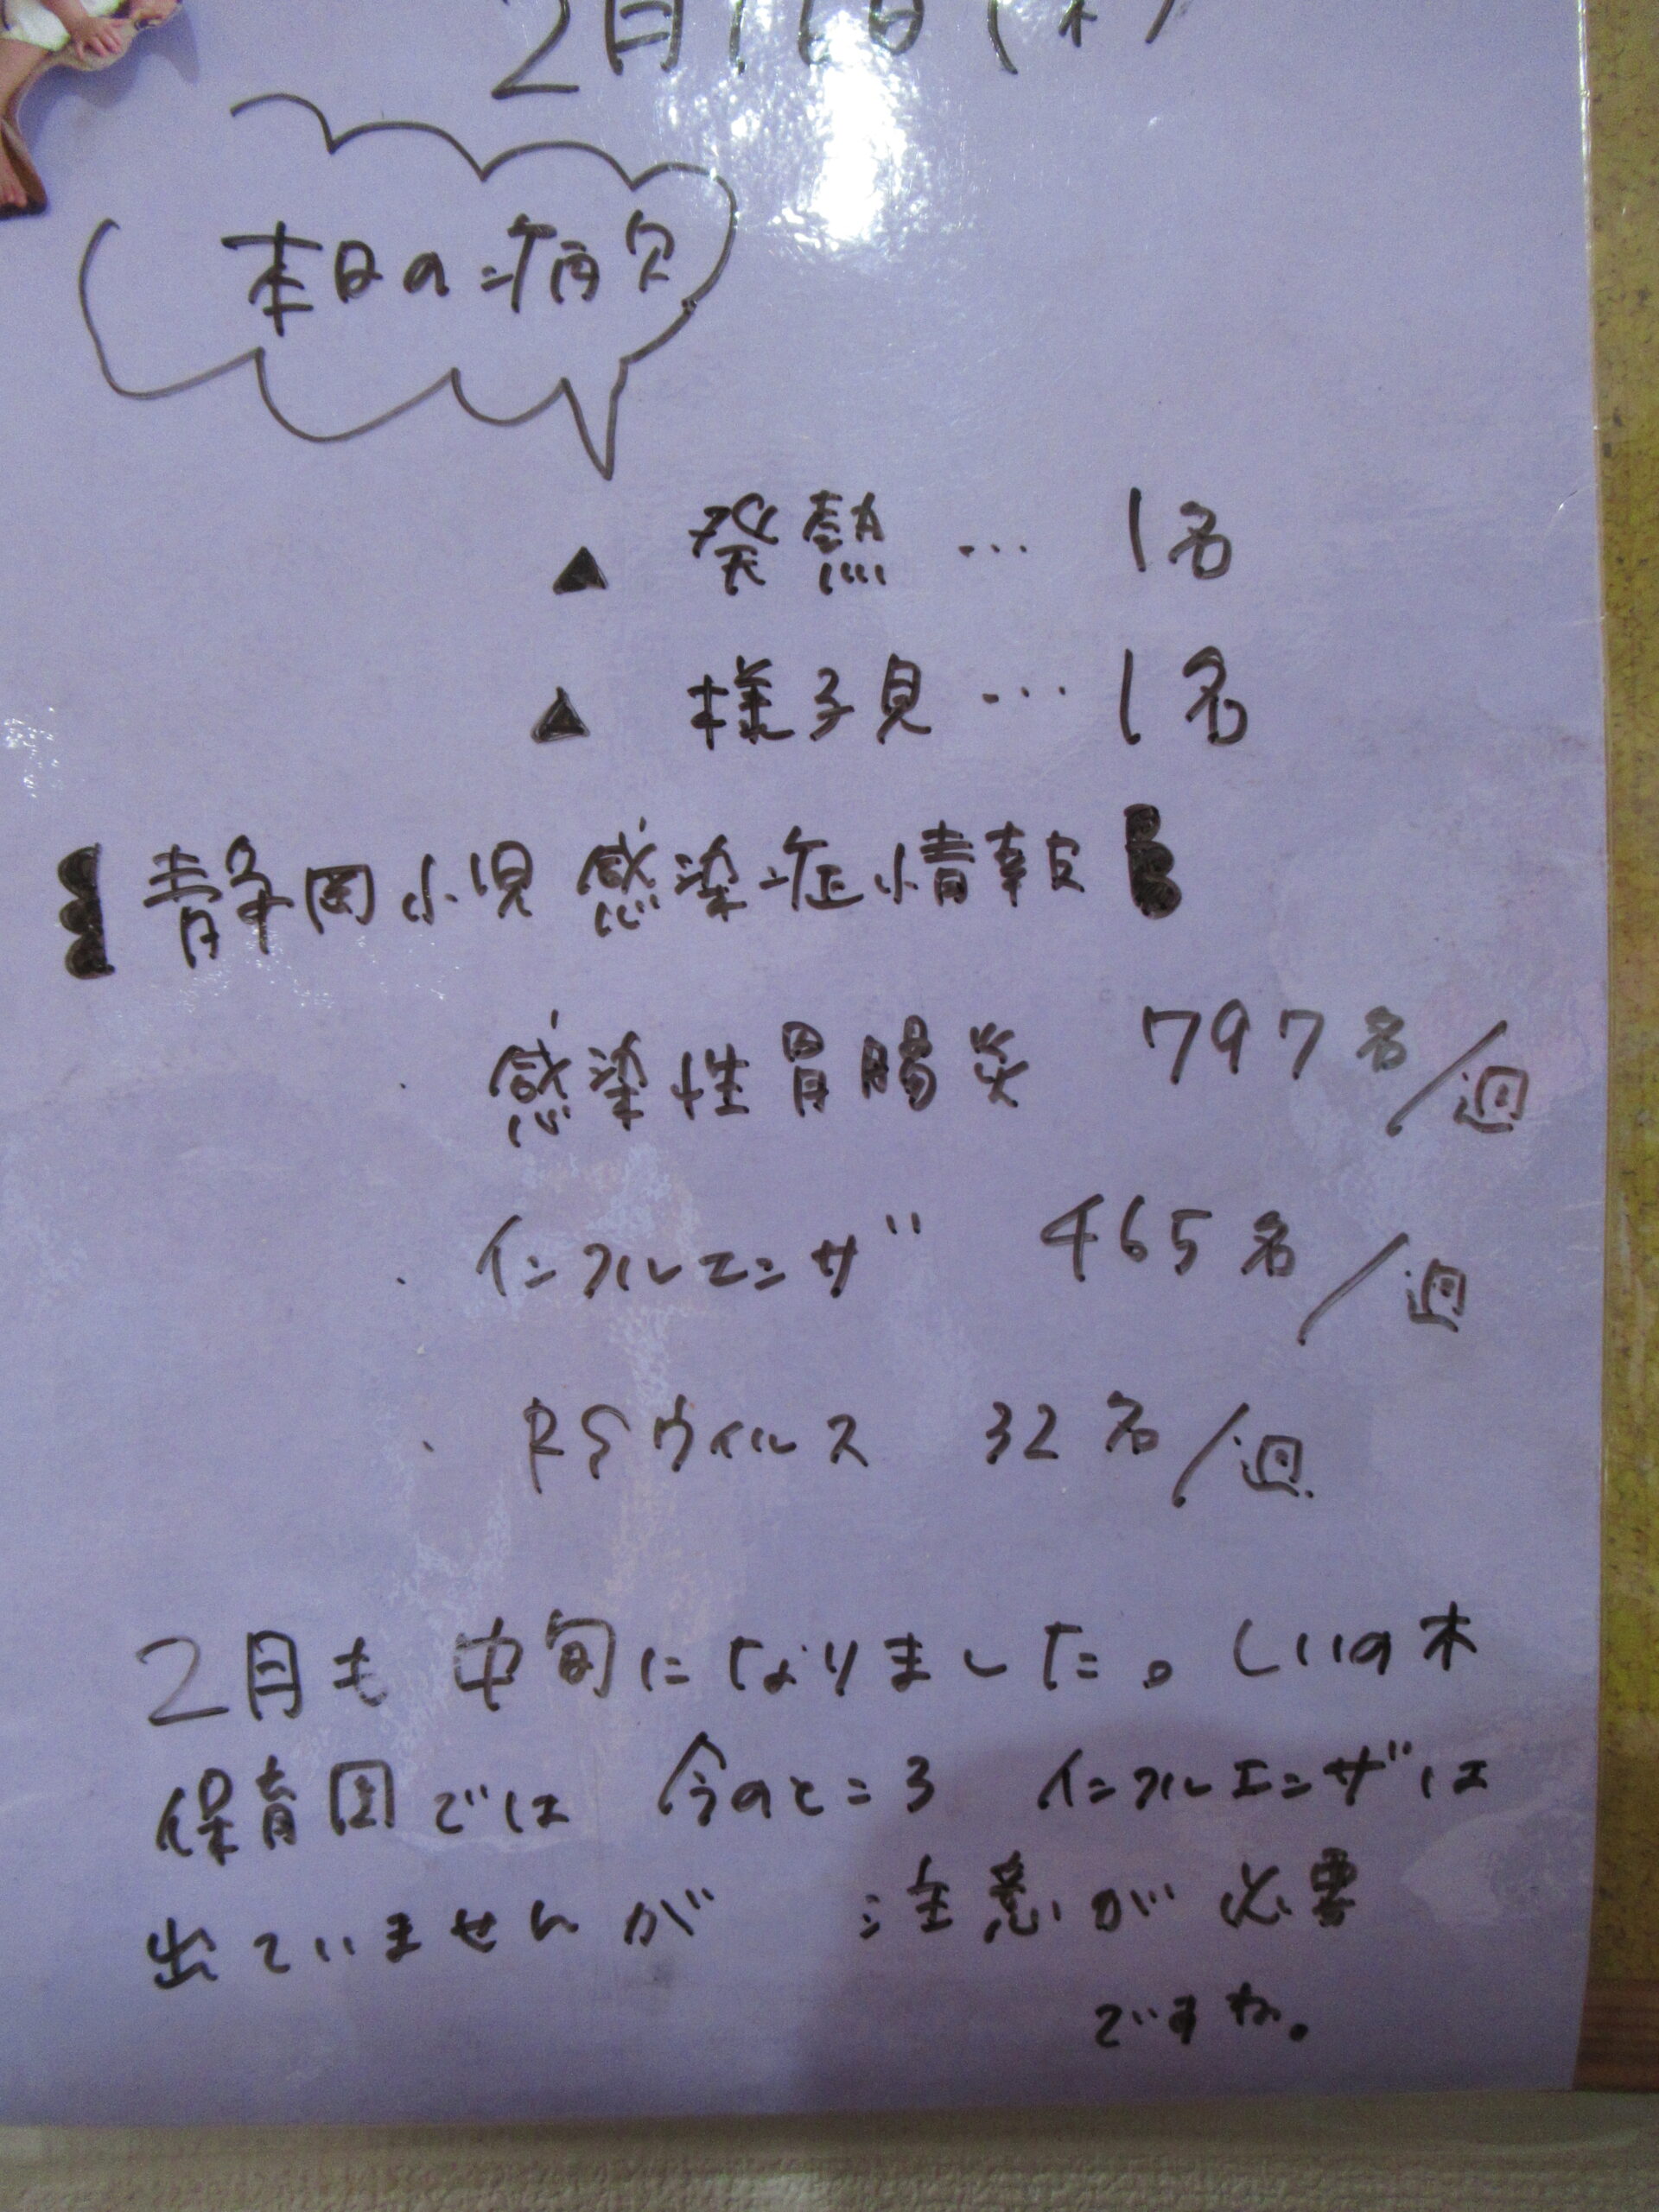 2月
本日の病欠
▲ 発熱 … 1名
▲ 様子見 … 1名
静岡小児感染症情報
・ 感染性胃腸炎 797名/週
・ インフルエンザ 465名/週
・ RSウィルス 32名/週
2月も中旬になりました。しいの木
保育園では 今のところ インフルエンザは
出ていませんが 注意が必要
ですね。